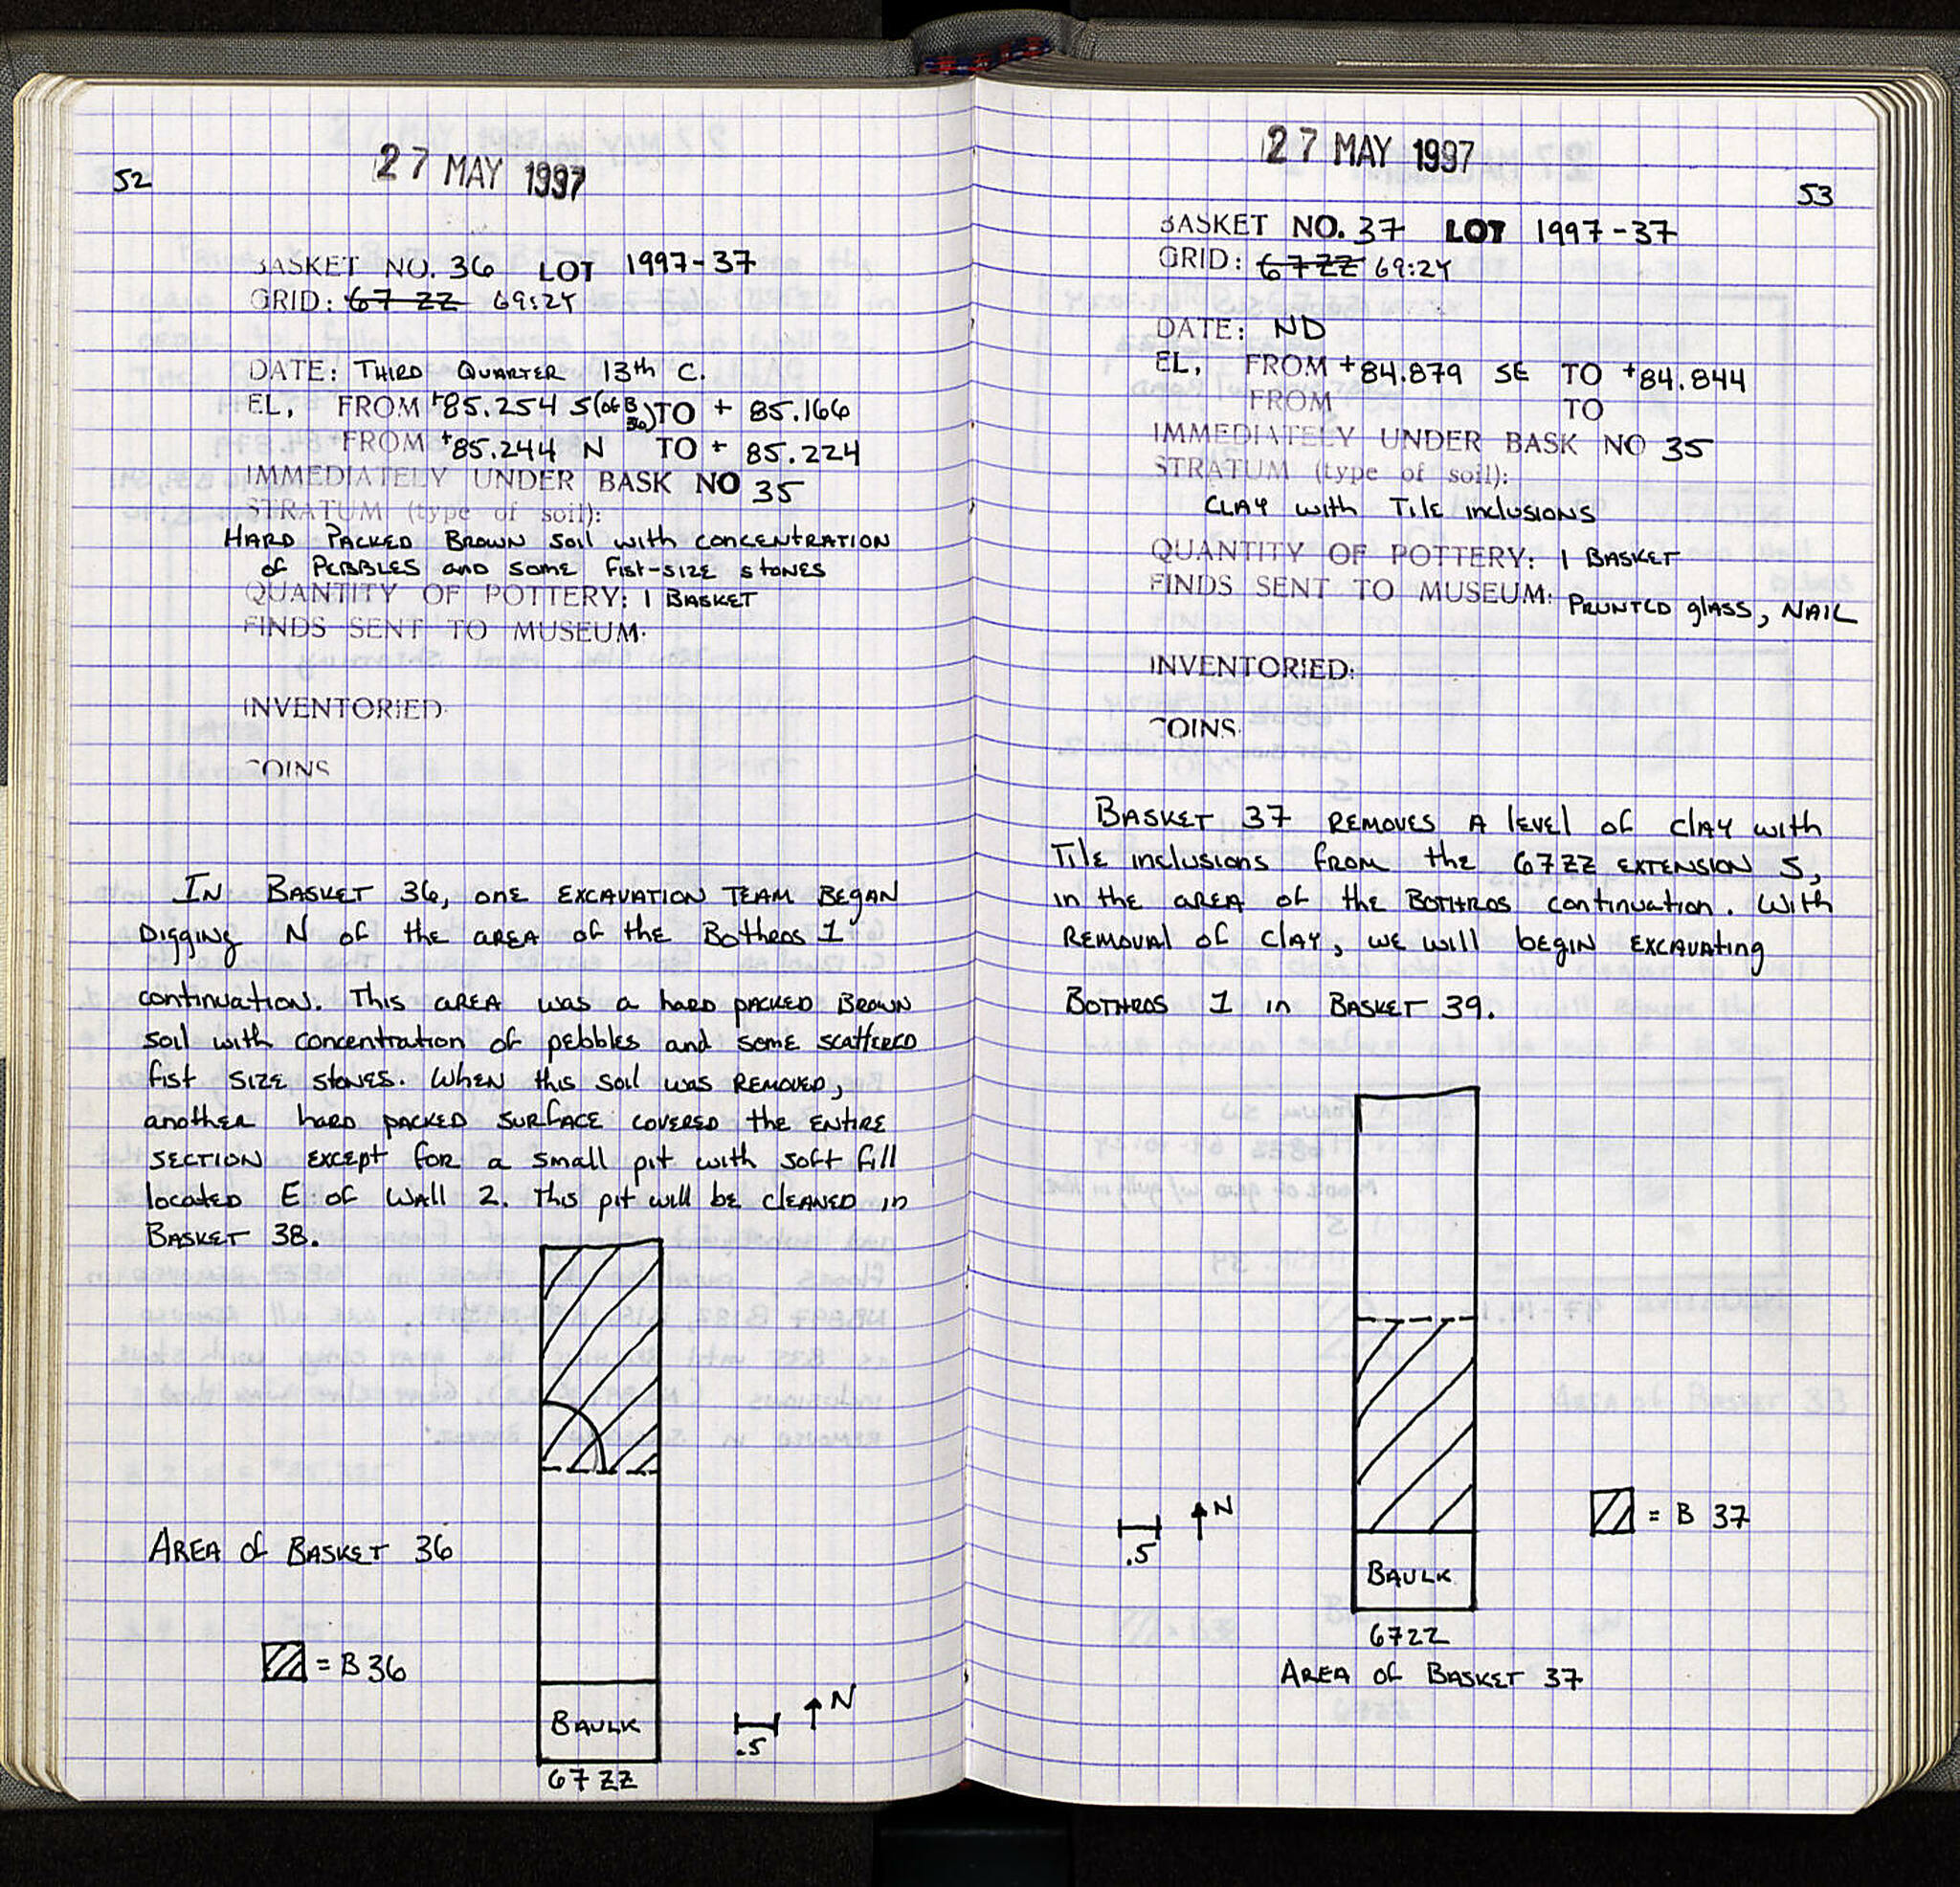 52
27 MAY 1997
BASKET NO. 36 LOT 1997-37
GRID: 67 ZZ 69:2Y
DATE: THIRD QUARTER 13th C.
EL, FROM +85.254 S (of B 36) TO + 85.166
FROM +85.244 N TO + 85.224
IMMEDIATELY UNDER BASK NO 35
STRATUM (type of soil):
HARD PACKED BROWN SOIL WITH CONCENTRATION
of PEBBLES AND SOME FIST-SIZE STONES
QUANTITY OF POTTERY: 1 BASKET
FINDS SENT TO MUSEUM:
INVENTORIED
COINS
IN BASKET 36, ONE EXCAVATION TEAM BEGAN
DIGGING N OF THE AREA OF THE BOTHROS 1
CONTINUATION. THIS AREA WAS A HARD PACKED BROWN
SOIL WITH CONCENTRATION OF PEBBLES AND SOME SCATTERED
FIST SIZE STONES. WHEN THIS SOIL WAS REMOVED,
ANOTHER HARD PACKED SURFACE COVERED THE ENTIRE
SECTION EXCEPT FOR A SMALL PIT WITH SOFT FILL
LOCATED E OF WALL 2. THIS PIT WILL BE CLEANED IN
BASKET 38.
AREA OF BASKET 36
= B 36
BAULK
.5
N
67 ZZ
27 MAY 1997
53
BASKET NO. 37 LOT 1997-37
GRID: 67 ZZ 69:2Y
DATE: ND
EL, FROM +84.879 SE TO +84.844
FROM TO
IMMEDIATELY UNDER BASK NO 35
STRATUM (type of soil):
CLAY WITH TILE INCLUSIONS
QUANTITY OF POTTERY: 1 BASKET
FINDS SENT TO MUSEUM: PRUNTED GLASS, NAIL
INVENTORIED:
COINS
BASKET 37 REMOVES A LEVEL OF CLAY WITH
TILE INCLUSIONS FROM THE 67ZZ EXTENSION S,
IN THE AREA OF THE BOTHROS CONTINUATION. WITH
REMOVAL OF CLAY, WE WILL BEGIN EXCAVATING
BOTHROS 1 IN BASKET 39.
.5
N
= B 37
BAULK
67ZZ
AREA OF BASKET 37